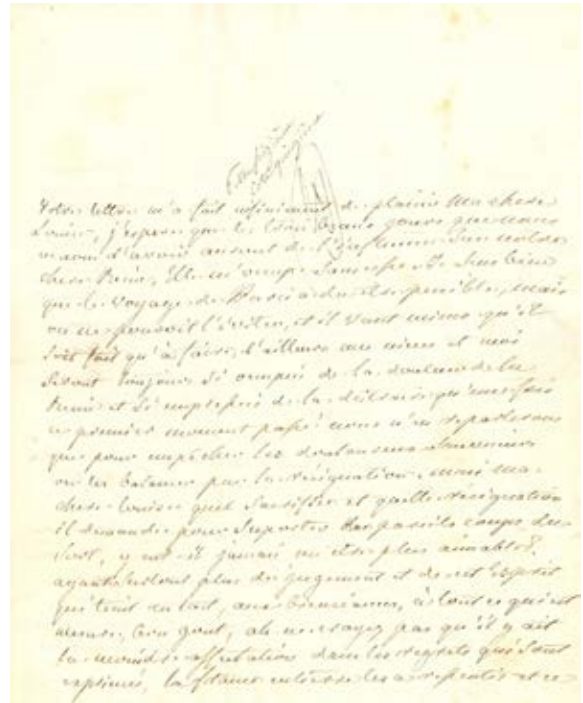 Votre lettre m'a fait infiniment de plaisir Ma chere
Louise, j'espere que les trois beaux jours que nous
venons d'avoir auront de l'influence Sur notre
chere Reine, Elle m'occupe Sans cesse. Je Sens bien
que le voyage de Paris a du etre penible, mais
on ne pouvoit l'éviter, et il vaut mieux qu'il
soit fait qu'a faire, d'ailleurs ma niece et moi
Seront toujours Si occupées de la douleur de la
Reine et Si empressées de la distraire qu'une fois
ce premier moment passé nous n'en reparlerons
que pour empêcher les douloureux
ou les balancer par la résignation, mais ma
chere Louise quel Sacrifice et quelle résignation
il demande pour Suporter des pareils coups du
Sort, y eut-il jamais un etre plus aimable?
ayant Surtout plus de jugement et de cet Esprit
qui tient au tact, aux bienséances, à tout ce qui est
mesure, bon gout, ah ne croyez pas qu'il y ait
la moindre affectation dans les regrets qui Sont
exprimés, la france entiere les a ressentis et ce